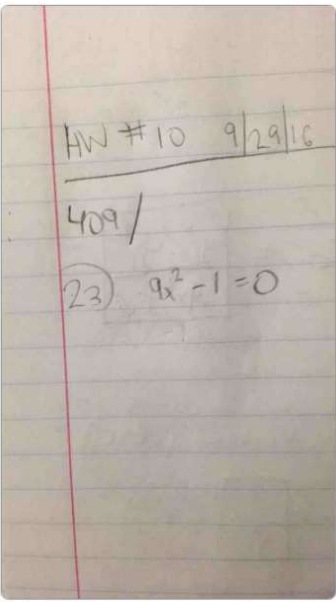 HW #10 9/29/16
409/
23) 9x² - 1 = 0